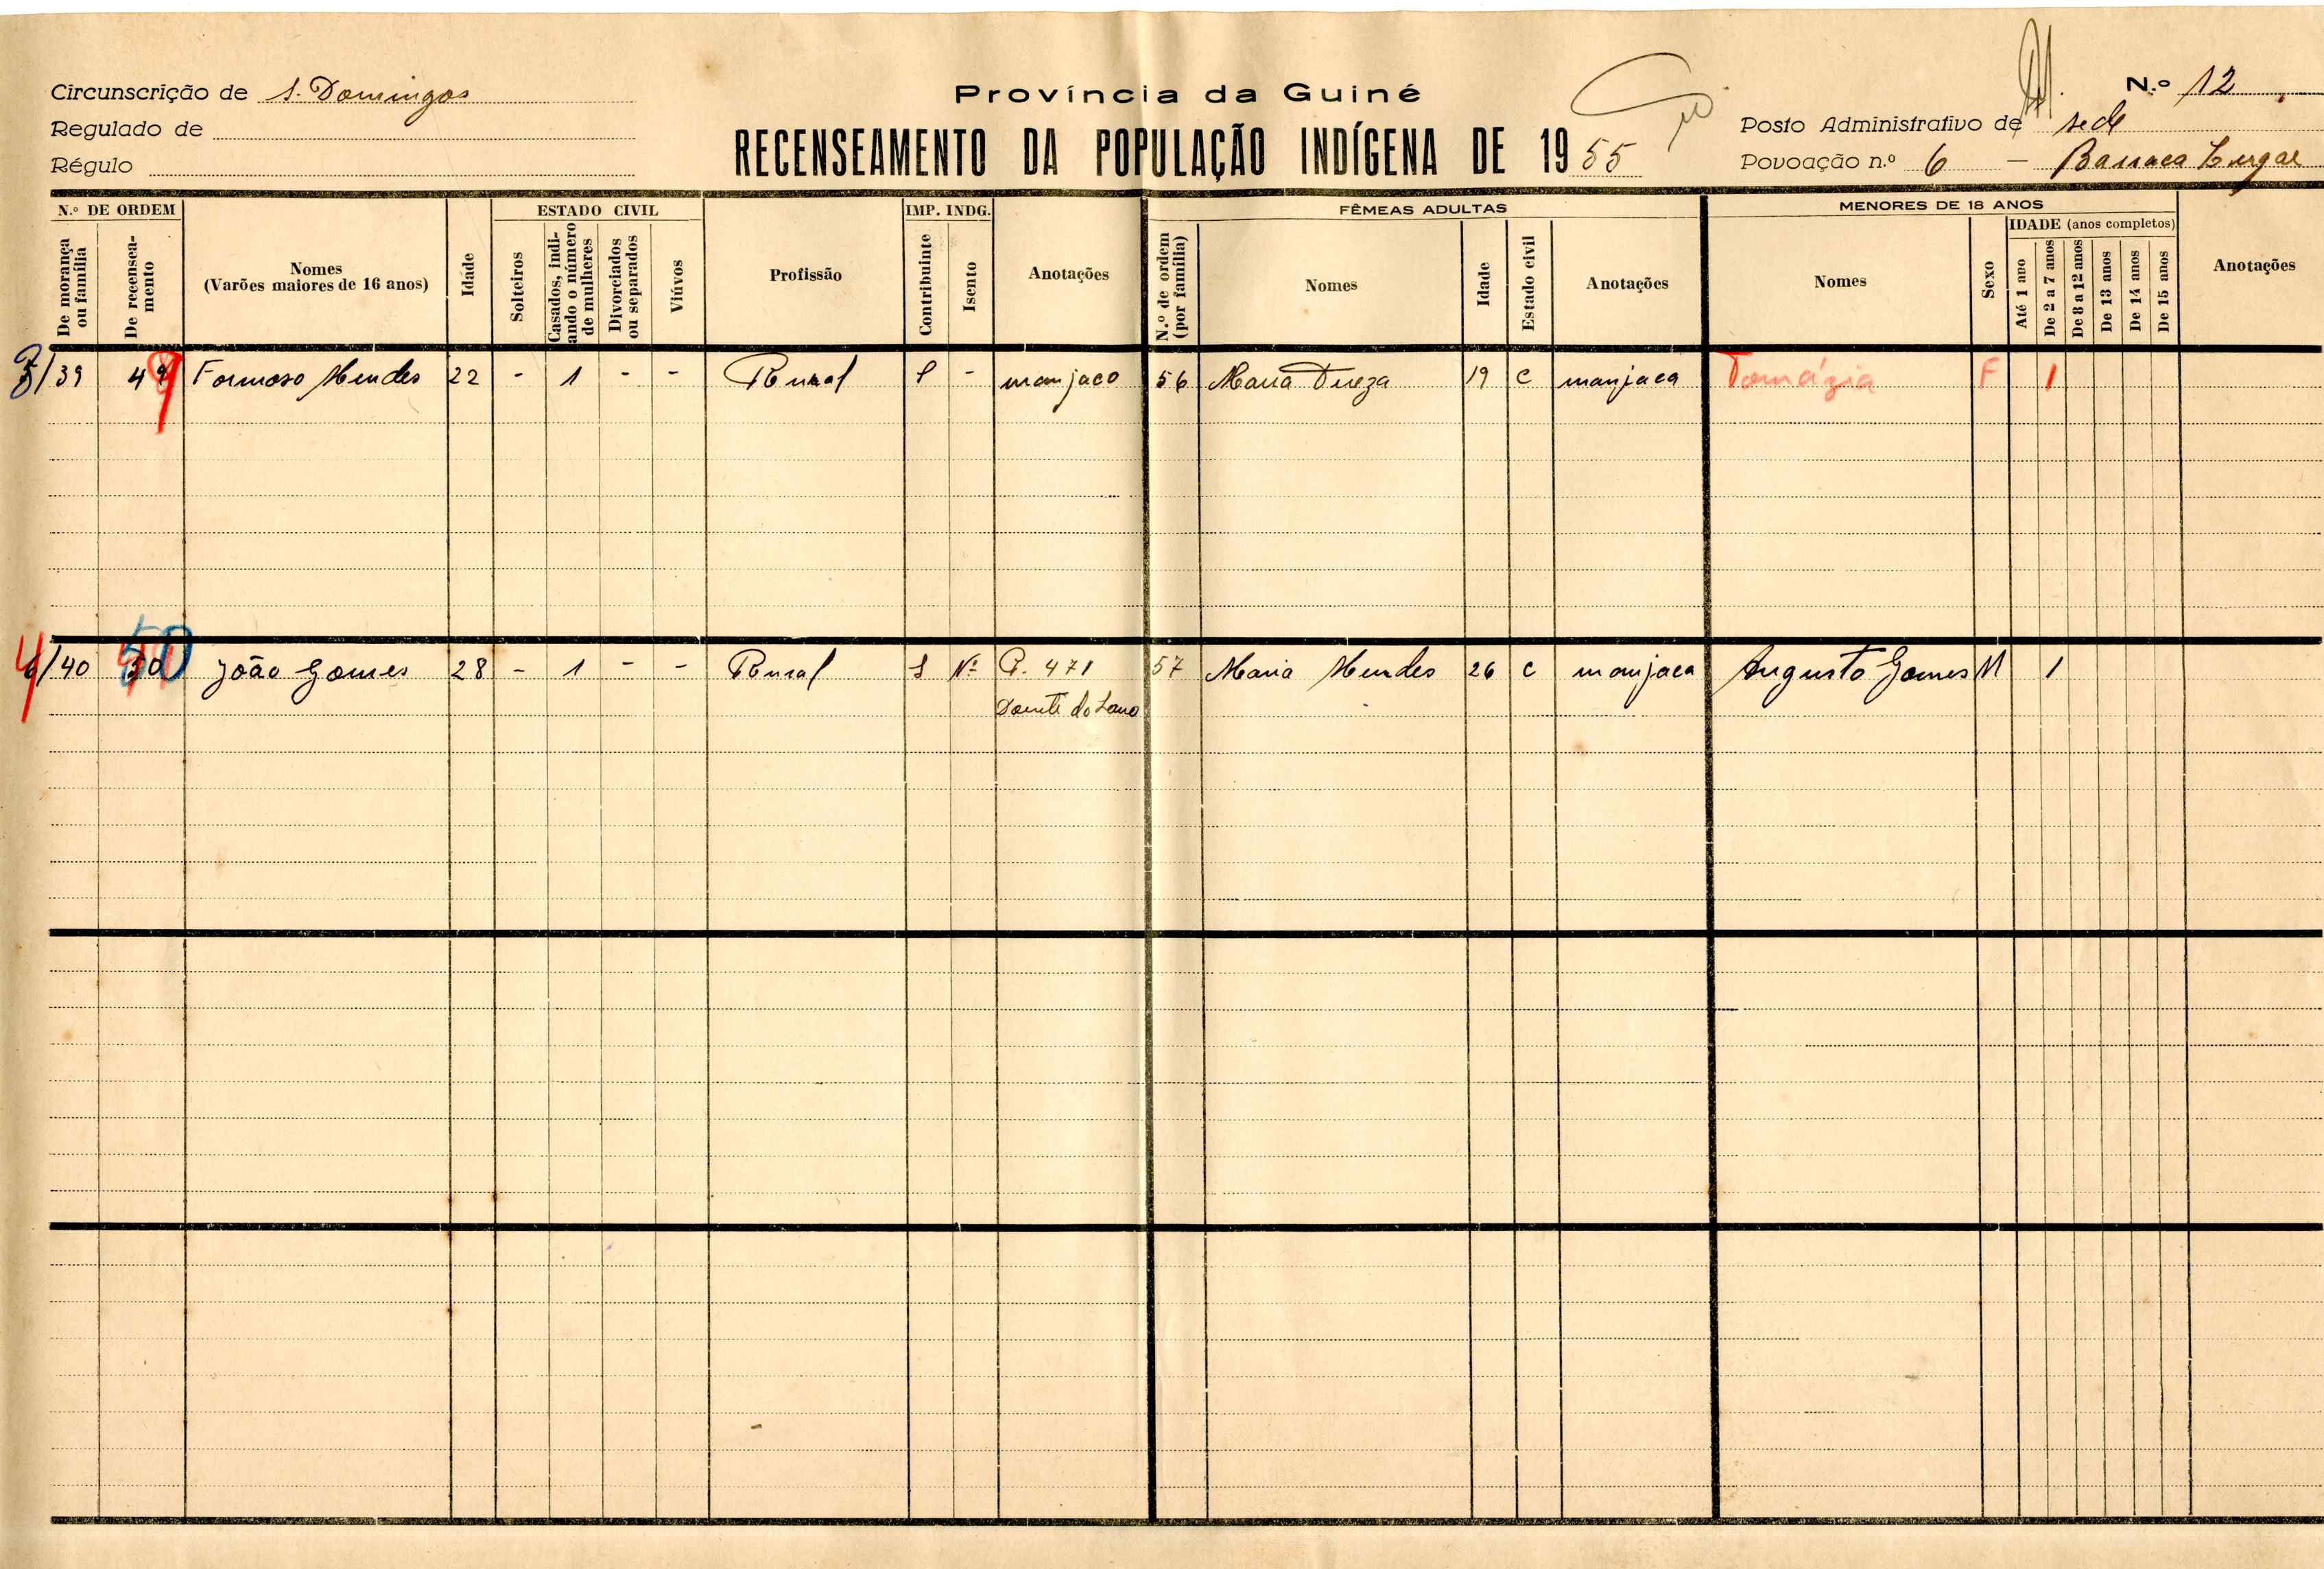 Circunscrição de S. Domingos
Regulado de
Régulo
Província da Guiné
RECENSEAMENTO DA POPULAÇÃO INDÍGENA DE 1955
N.º 12
Posto Administrativo de sede
Povoação n.º 6 — Barraca
N.º DE ORDEM
De morança ou família
De recensea-mento
Nomes
(Varões maiores de 16 anos)
Idade
ESTADO CIVIL
Solteiros
Casados, indi-ando o número de mulheres
Divorciados ou separados
Viúvos
Profissão
IMP. INDG.
Contribuinte
Isento
Anotações
FÊMEAS ADULTAS
N.º de ordem (por família)
Nomes
Idade
Estado civil
Anotações
MENORES DE 18 ANOS
Nomes
Sexo
IDADE (anos completos)
Até 1 ano
De 2 a 7 anos
De 8 a 12 anos
De 13 anos
De 14 anos
De 15 anos
Anotações
/39 49 Formoso Mendes 22 - 1 - - Rural S - manjaco 56 Maria Tereza 19 C manjaca Tomázia F 1
/40 50 João Gomes 28 - 1 - - Rural S Nº P. 471 57 Maria Mendes 26 C manjaca Augusto Gomes M 1